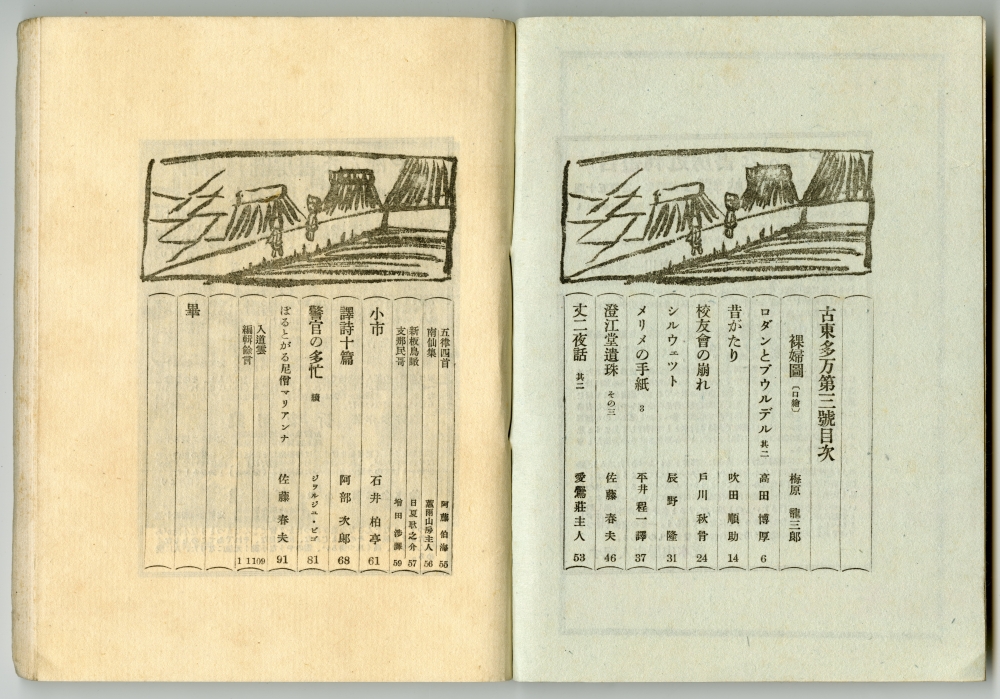 古東多万第三號目次
裸婦圖〔口繪〕 梅原龍三郎
ロダンとブウルデル 其二 高田博厚 6
昔がたり 吹田順助 14
校友會の崩れ 戸川秋骨 24
シルウェツト 辰野隆 31
メリメの手紙 3 平井程一譯 37
澄江堂遺珠 その三 佐藤春夫 46
丈二夜話 其二 愛鷺莊主人 53
五律四首 阿藤伯海 55
南仙集 蕙雨山房主人 56
新板鳥瞰 日夏耿之介 57
支那民哥 增田涉譯 59
小市 石井柏亭 61
譯詩十篇 阿部次郞 68
警官の多忙 續 ジヨルジユ・ビゴ 81
ぽるとがる尼僧マリアンナ 佐藤春夫 91
入道雲 109
編輯餘言 11
畢